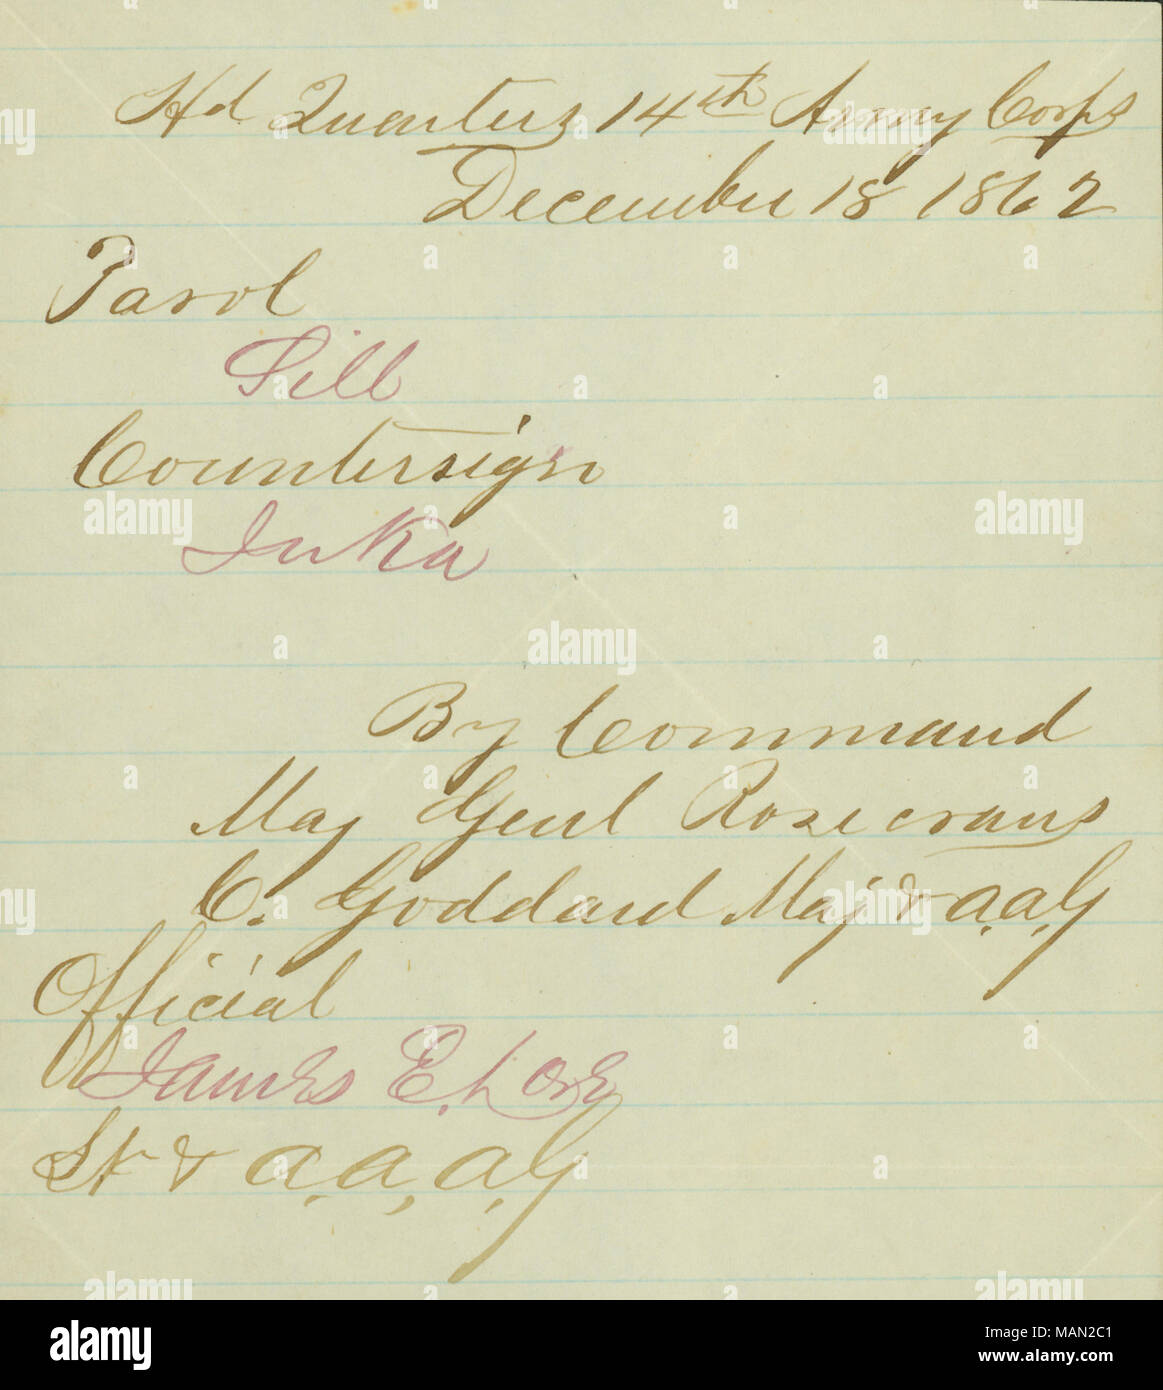 Hd Quarters 14th Army Corps
December 18 1862
Parol
Sill
Countersign
Iuka
By Command
Maj Genl Rosecrans
C. Goddard Maj & a.a.G
Official
James E. Love
Lt & a.a,a.G
alamy
Image ID: MAN2C1
www.alamy.com